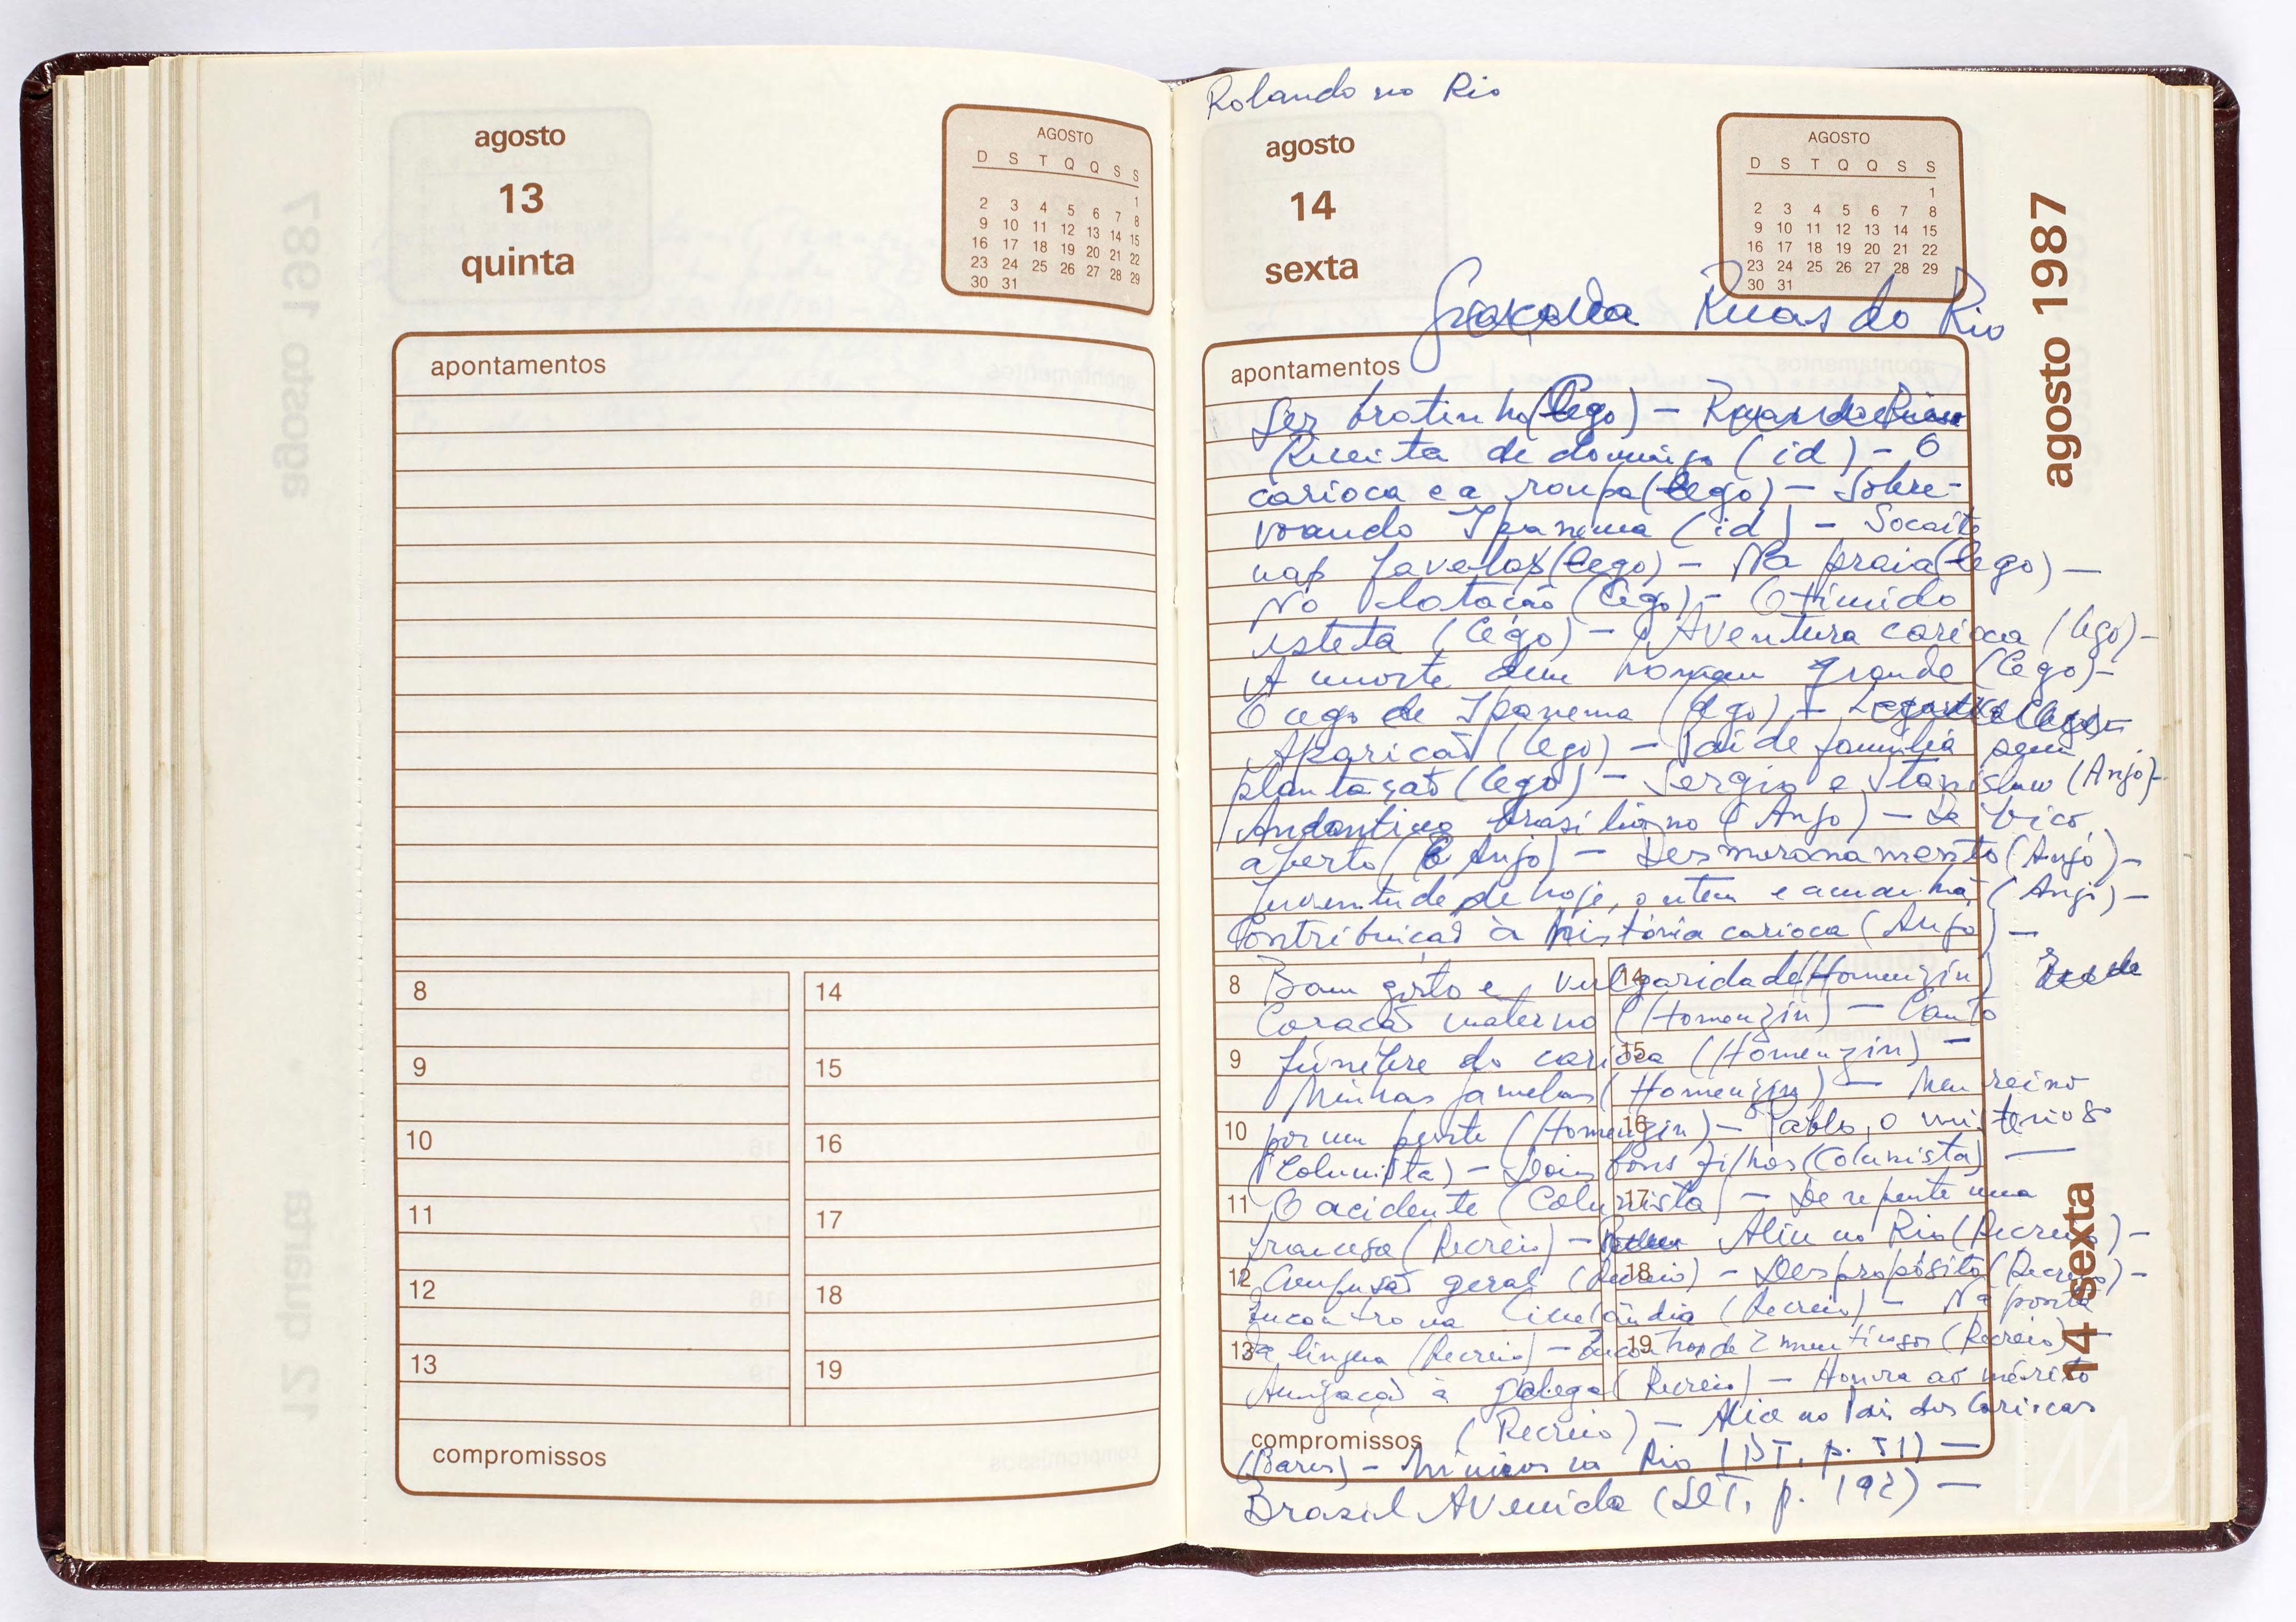 agosto
13
quinta
AGOSTO
D S T Q Q S S
1
2 3 4 5 6 7 8
9 10 11 12 13 14 15
16 17 18 19 20 21 22
23 24 25 26 27 28 29
30 31
apontamentos
8 14
9 15
10 16
11 17
12 18
13 19
compromissos
Rolando no Rio
agosto
14
sexta
AGOSTO
D S T Q Q S S
1
2 3 4 5 6 7 8
9 10 11 12 13 14 15
16 17 18 19 20 21 22
23 24 25 26 27 28 29
30 31
agosto 1987
Ruas do Rio
apontamentos
Ser brotinho (Cego) –
Receita de domingo (id) – O
carioca e a roupa (Cego) – Sobre-
voando Ipanema (id) – Socaite
nas favelas (Cego) – Na praia (Cego) –
No lotação (Cego) – O tímido
esteta (Cego) – Aventura carioca (Cego) –
A morte dum homem grande (Cego) –
O cego de Ipanema (Cego) –
Aparição (Cego) – Pai de família sem
plantação (Cego) – Sergio e Stanislaw (Anjo) –
Andantino brasiliano (Anjo) – De bico
aberto (Anjo) – Desmoronamento (Anjo) –
Juventude de hoje, ontem e amanhã (Anjo) –
Contribuição à história carioca (Anjo) –
8 Bom gosto e vulgaridade (Homenzin) 14
Coração materno (Homenzin) – Canto
9 fúnebre do carioca (Homenzin) – 15
Minhas janelas (Homenzin) – Meu reino
10 por um pente (Homenzin) – Pablo, o misterioso 16
(Colunista) – Dois bons filhos (Colunista) –
11 O acidente (Colunista) – De repente uma 17
francesa (Recreio) – Alice no Rio (Recreio) –
12 Confusão geral (Recreio) – Despropósito (Recreio) – 18
Encontro na Cinelândia (Recreio) – Na ponta
13 da língua (Recreio) – Encontros de 2 mentirosos (Recreio) – 19
à galega (Recreio) – Honra ao mérito
(Recreio) – Alice no País dos Cariocas
compromissos
(Bares) – Mínimos no Rio (DT, p. 51) –
Brasil Avenida (DT, p. 192) –
14 sexta